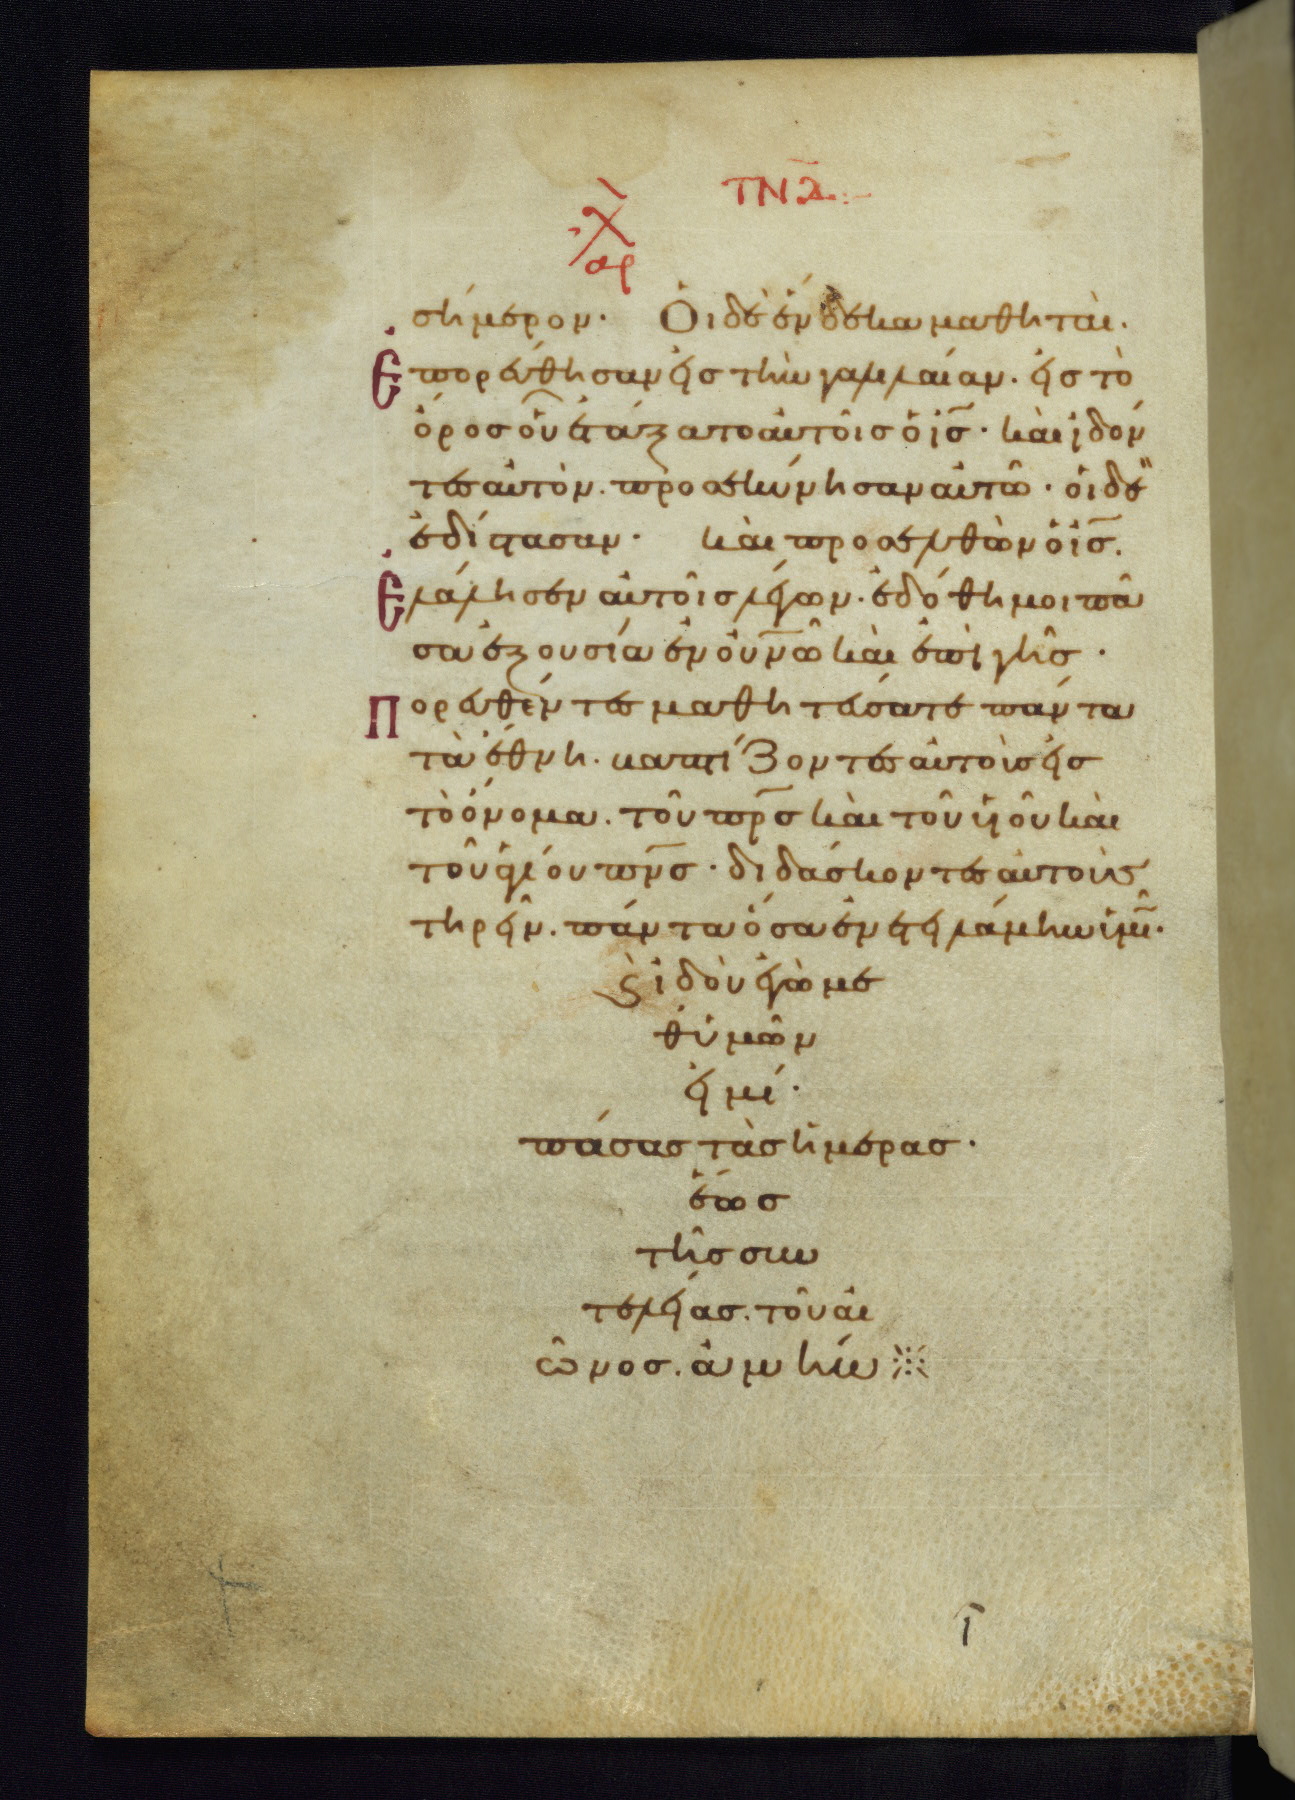 ΤΝΔ
Χ
αρ
σήμερον· Οἱ δὲ ἕνδεκα μαθηταὶ·
ἐπορεύθησαν εἰς τὴν γαλιλαίαν· εἰς τὸ
ὄρος οὗ ἐτάξατο αὐτοῖς ὁ ις· καὶ ἰδόν
τες αὐτὸν. προσεκύνησαν αὐτῶ· οἱ δὲ
ἐδίστασαν· καὶ προσελθὼν ὁ ις.
ἐλάλησεν αὐτοῖς λέγων· ἐδόθη μοι πᾶ
σα ἐξουσία ἐν οὐνῶ καὶ ἐπὶ γῆς·
Πορευθέντες μαθητεύσατε πάντα
τὰ ἔθνη. βαπτίζοντες αὐτοὺς εἰς
τὸ ὄνομα. τοῦ πρς καὶ τοῦ υἱοῦ καὶ
τοῦ ἁγίου πνς· διδάσκοντες αὐτοὺς
τηρεῖν. πάντα ὅσα ἐνετειλάμην ὑμῖ·
ϛ ἰδοὺ ἐγὼ με
θ ὑμῶν
εἰμί·
πάσας τὰς ἡμέρας·
ἕως
τῆς συν
τελείας. τοῦ αἰ
ῶνος. ἀμήν